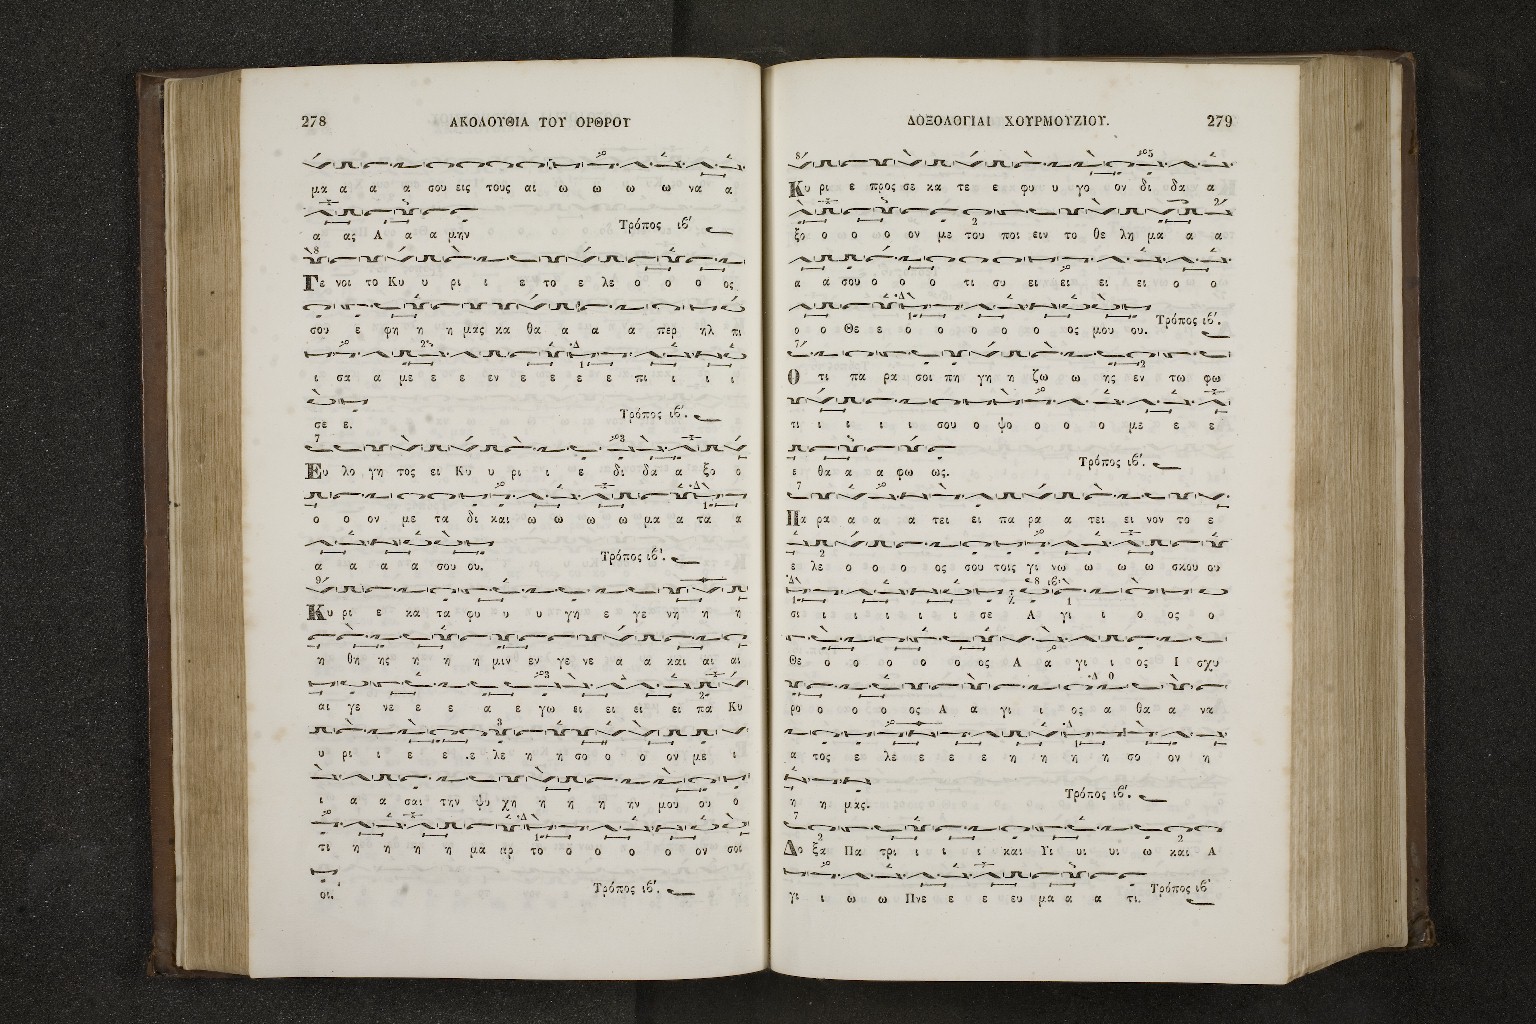 278 ΑΚΟΛΟΥΘΙΑ ΤΟΥ ΟΡΘΡΟΥ
μα α α α σου εις τους αι ω ω ω ω να α
α ας Α α α μην Τρόπος ιβ′
Γε νοι το Κυ υ ρι ι ε το ε λε ο ο ο ος
σου ε φη η η μας κα θα α α α περ ηλ πι
ι σα α με ε ε εν ε ε ε ε πι ι ι ι
σε ε. Τρόπος ιβ′.
Ευ λο γη τος ει Κυ υ ρι ι ε δι δα α ξο ο
ο ο ον με τα δι και ω ω ω ω μα α τα α
α α α α σου ου. Τρόπος ιβ′.
Κυ ρι ε κα τα φυ υ υ γη ε γε νη η η
η θη ης η η η μιν εν γε νε α α και αι αι
αι γε νε ε ε α ε γω ει ει ει ει πα Κυ
υ ρι ι ε ε ε λε η η σο ο ο ον με ι
ι α α σαι την ψυ χη η η η ην μου ου ο
τι η η η η μα αρ το ο ο ο ο ον σοι
οι. Τρόπος ιβ′.
ΔΟΞΟΛΟΓΙΑΙ ΧΟΥΡΜΟΥΖΙΟΥ. 279
Κυ ρι ε προς σε κα τε ε φυ υ γο ον δι δα α
ξο ο ο ο ον με του ποι ειν το θε λη μα α α
α α σου ο ο ο τι συ ει ει ει ει ο ο
ο ο Θε ε ο ο ο ο ο ος μου ου. Τρόπος ιβ′.
Ο τι πα ρα σοι πη γη η ζω ω ης εν τω φω
τι ι ι ι ι σου ο ψο ο ο ο με ε ε
ε θα α α φω ως. Τρόπος ιβ′.
Πα ρα α α α τει ει πα ρα α τει ει νον το ε
ε λε ο ο ο ος σου τοις γι νω ω ω ω σκου ου
σι ι ι ι ι ι σε Α γι ι ο ος ο
Θε ο ο ο ο ο ος Α α γι ι ος Ι σχυ
ρο ο ο ο ος Α α γι ι ος α θα α να
α τος ε λε ε ε ε η η η η σο ον η
η η μας. Τρόπος ιβ′.
Δο ξα Πα τρι ι ι ι και Υι υι υι ω και Α
γι ι ω ω Πνε ε ε ευ μα α α τι. Τρόπος ιβ′